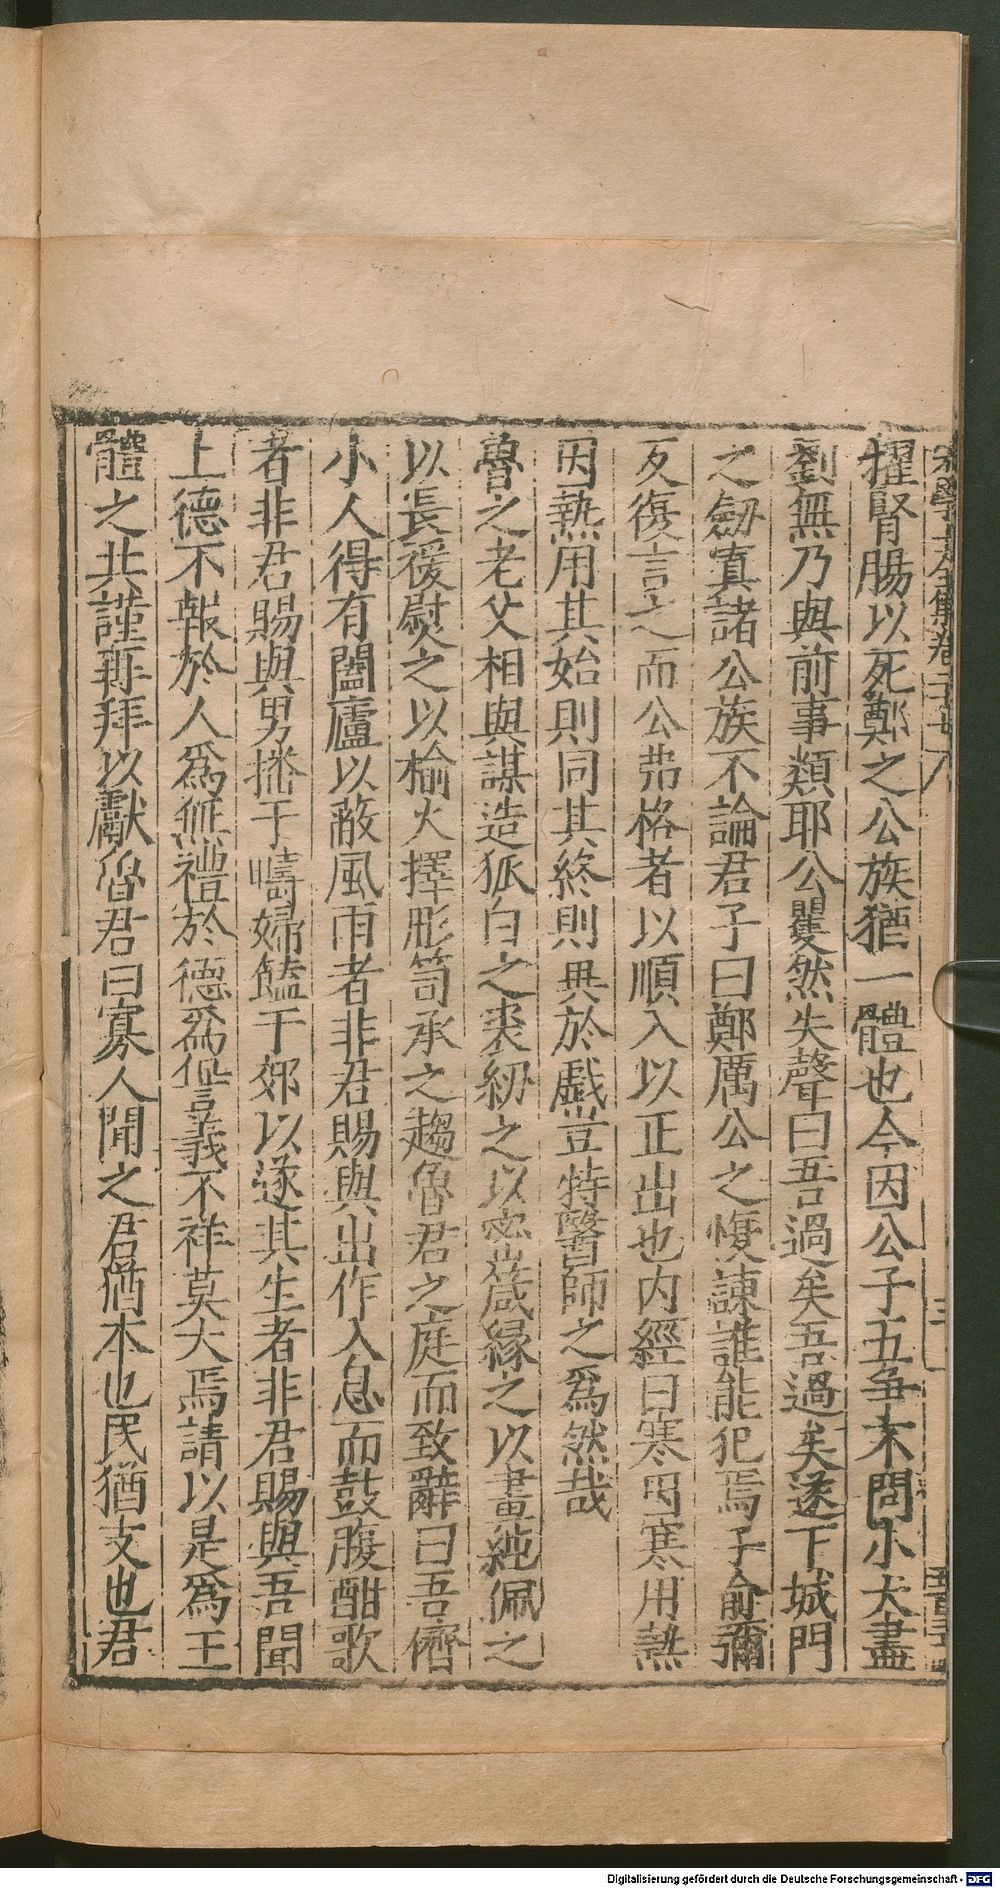 擢腎腸以死鄭之公族猶一體也今因公子五爭末問小大盡
劉無乃與前事類耶公瞿然失聲曰吾過矣吾過矣遂下城門
之劒寘諸公族不論君子曰鄭厲公之愎諫誰能犯焉子俞彌
反復言之而公弗格者以順入以正出也内經曰寒因寒用熱
因熱用其始則同其終則異於戲豈特醫師之為然哉
魯之老父相與謀造狐白之裘紉之以密箴緣之以畫純佩之
以長褑熨之以榆火擇彤笥承之趨魯君之庭而致辭曰吾儕
小人得有闔廬以蔽風雨者非君賜與出作入息而鼓腹酣歌
者非君賜與男播于疇婦饁于郊以遂其生者非君賜與吾聞
上德不報於人為無禮於德為㒵義不祥莫大焉請以是為王
體之共謹再拜以獻魯君曰寡人聞之君猶本也民猶支也君
Digitalisierung gefördert durch die Deutsche Forschungsgemeinschaft - DFG